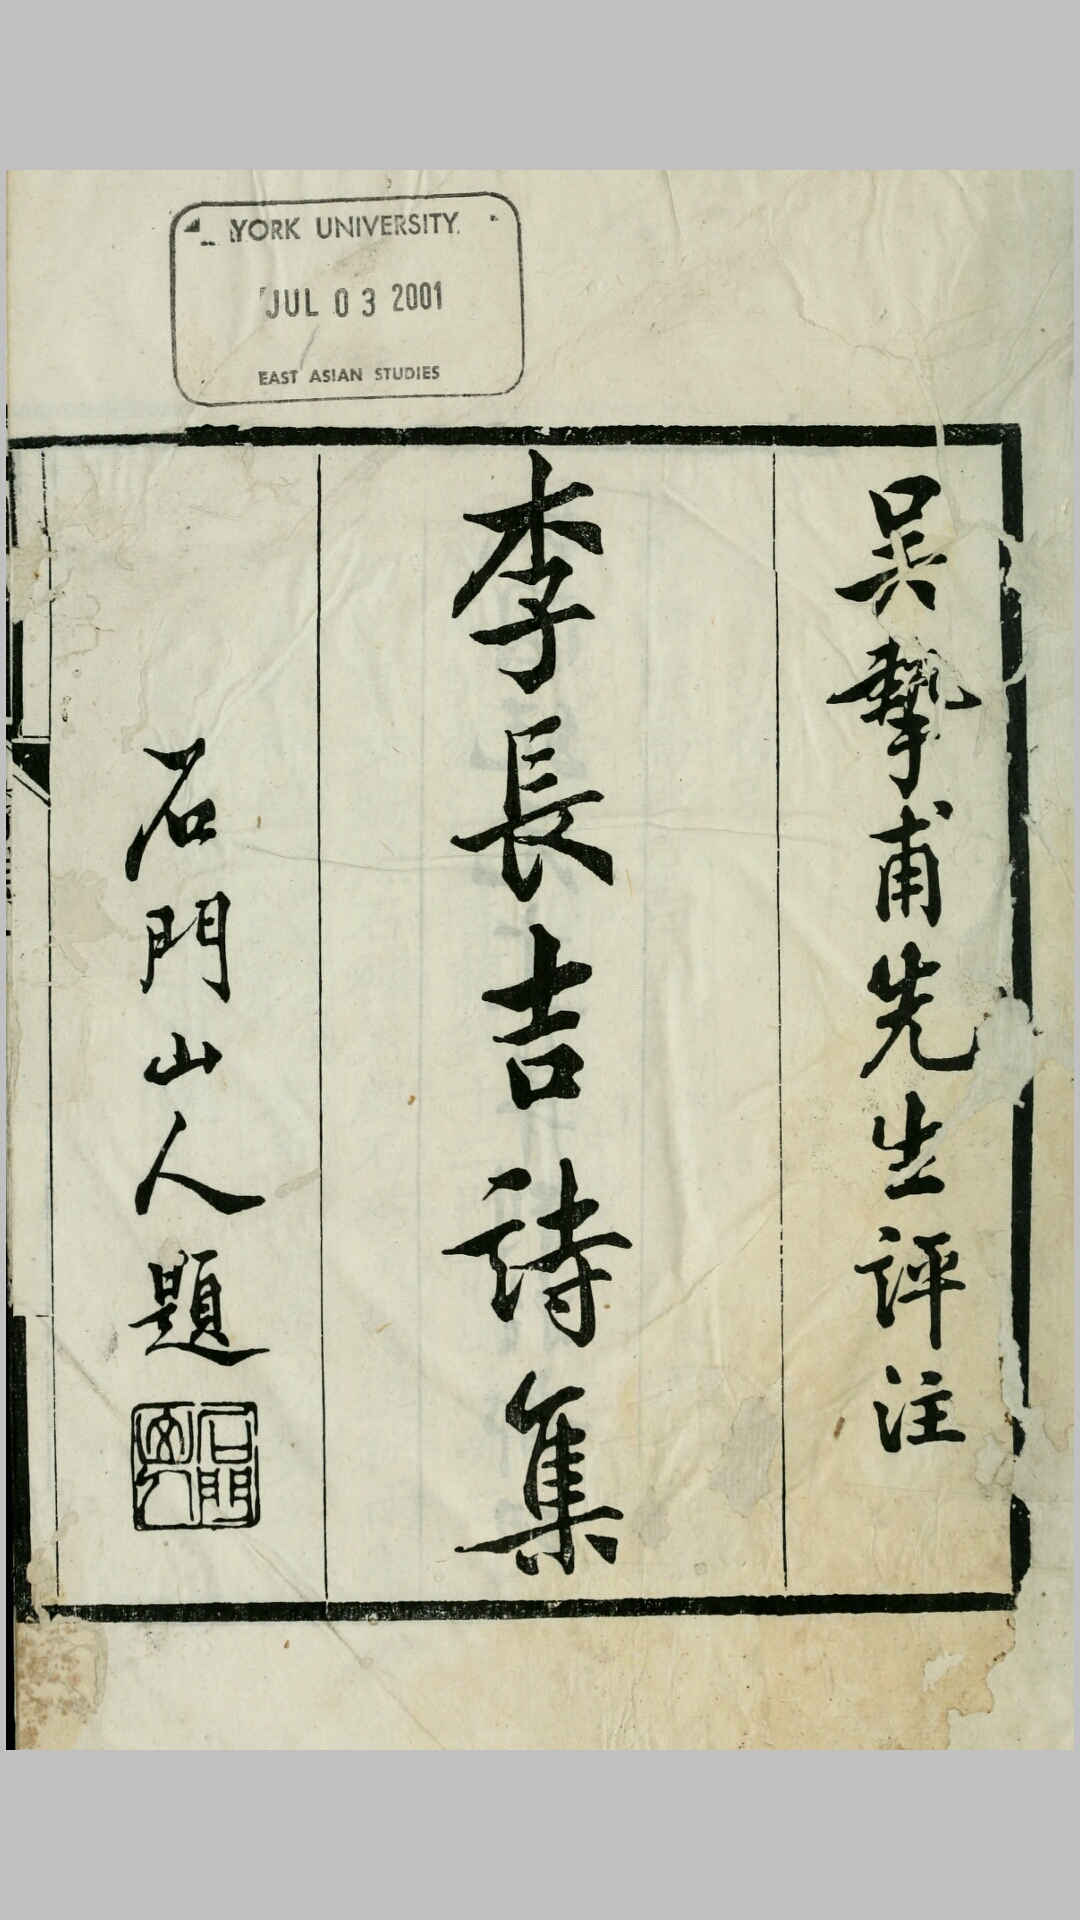 YORK UNIVERSITY
JUL 03 2001
EAST ASIAN STUDIES
吳摯甫先生評注
李長吉詩集
石門山人題